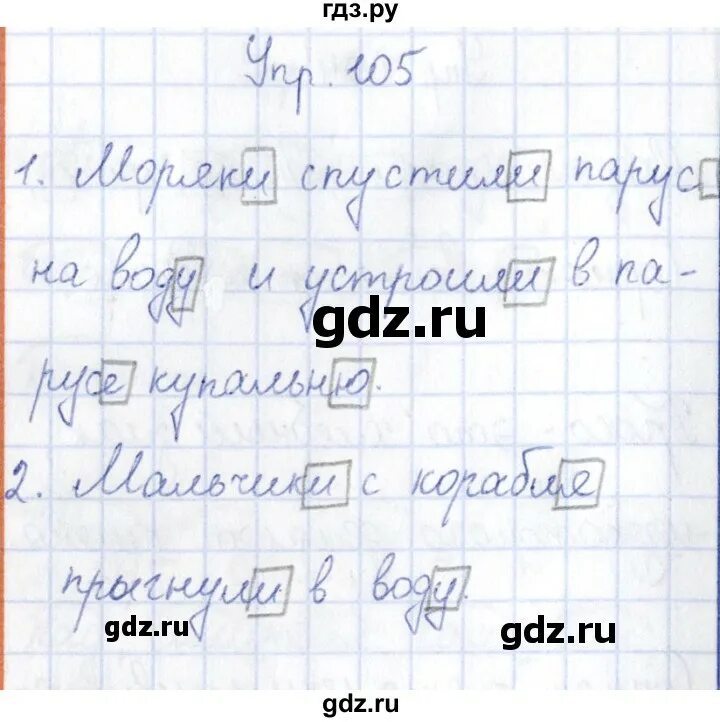 гдз.ру
Упр. 105
1. Моряки спустили парус
на воду и устроили в па-
gdz.ru
русе купальню.
2. Мальчики с корабля
прыгнули в воду.
gdz.ru
gdz.ru
gdz.ru